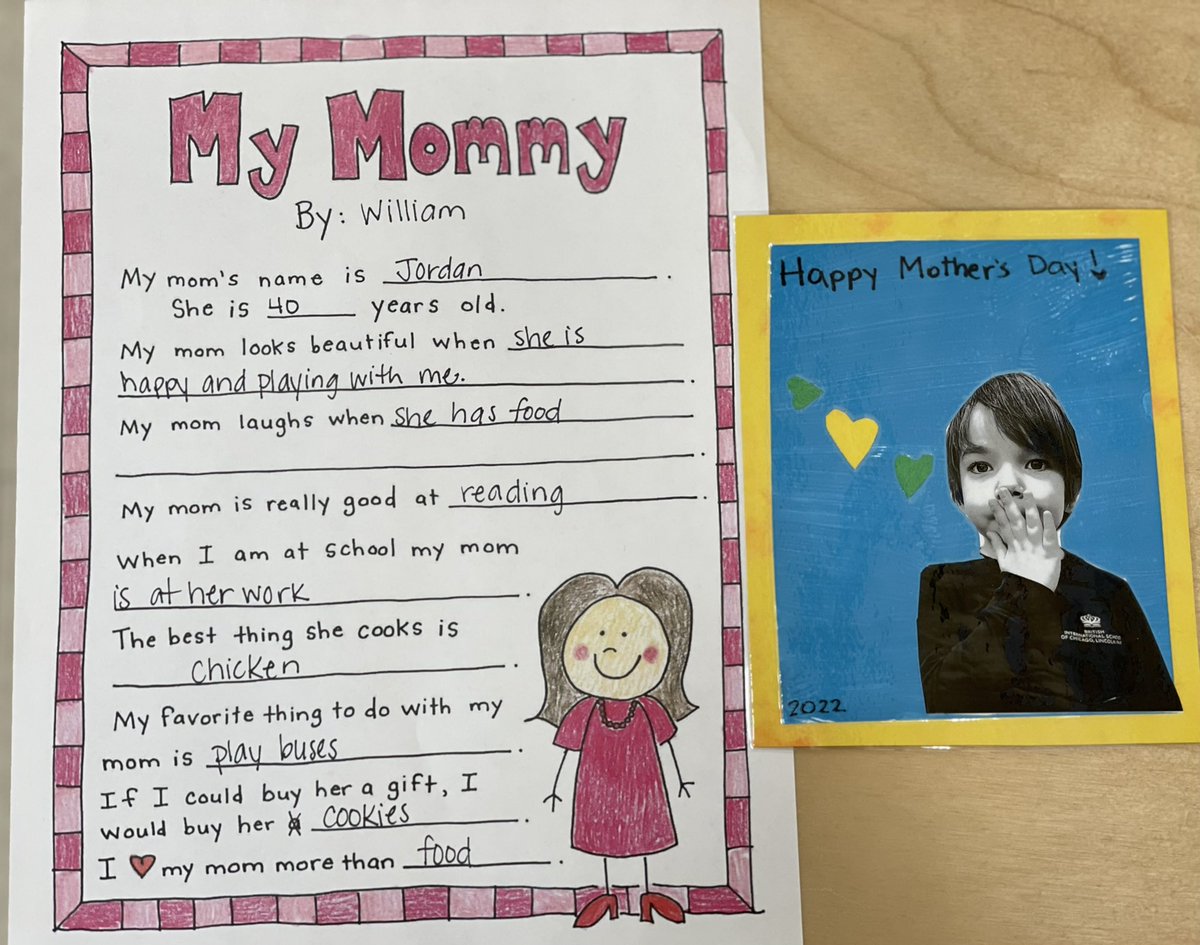 My Mommy
By: William
My mom's name is Jordan.
She is 40 years old.
My mom looks beautiful when she is
happy and playing with me.
My mom laughs when she has food
.
My mom is really good at reading.
When I am at school my mom
is at her work.
The best thing she cooks is
chicken.
My favorite thing to do with my
mom is play buses.
If I could buy her a gift, I
would buy her cookies.
I ♥ my mom more than food.
Happy Mother's Day!
BRITISH
INTERNATIONAL SCHOOL
OF CHICAGO, LINCOLN
2022